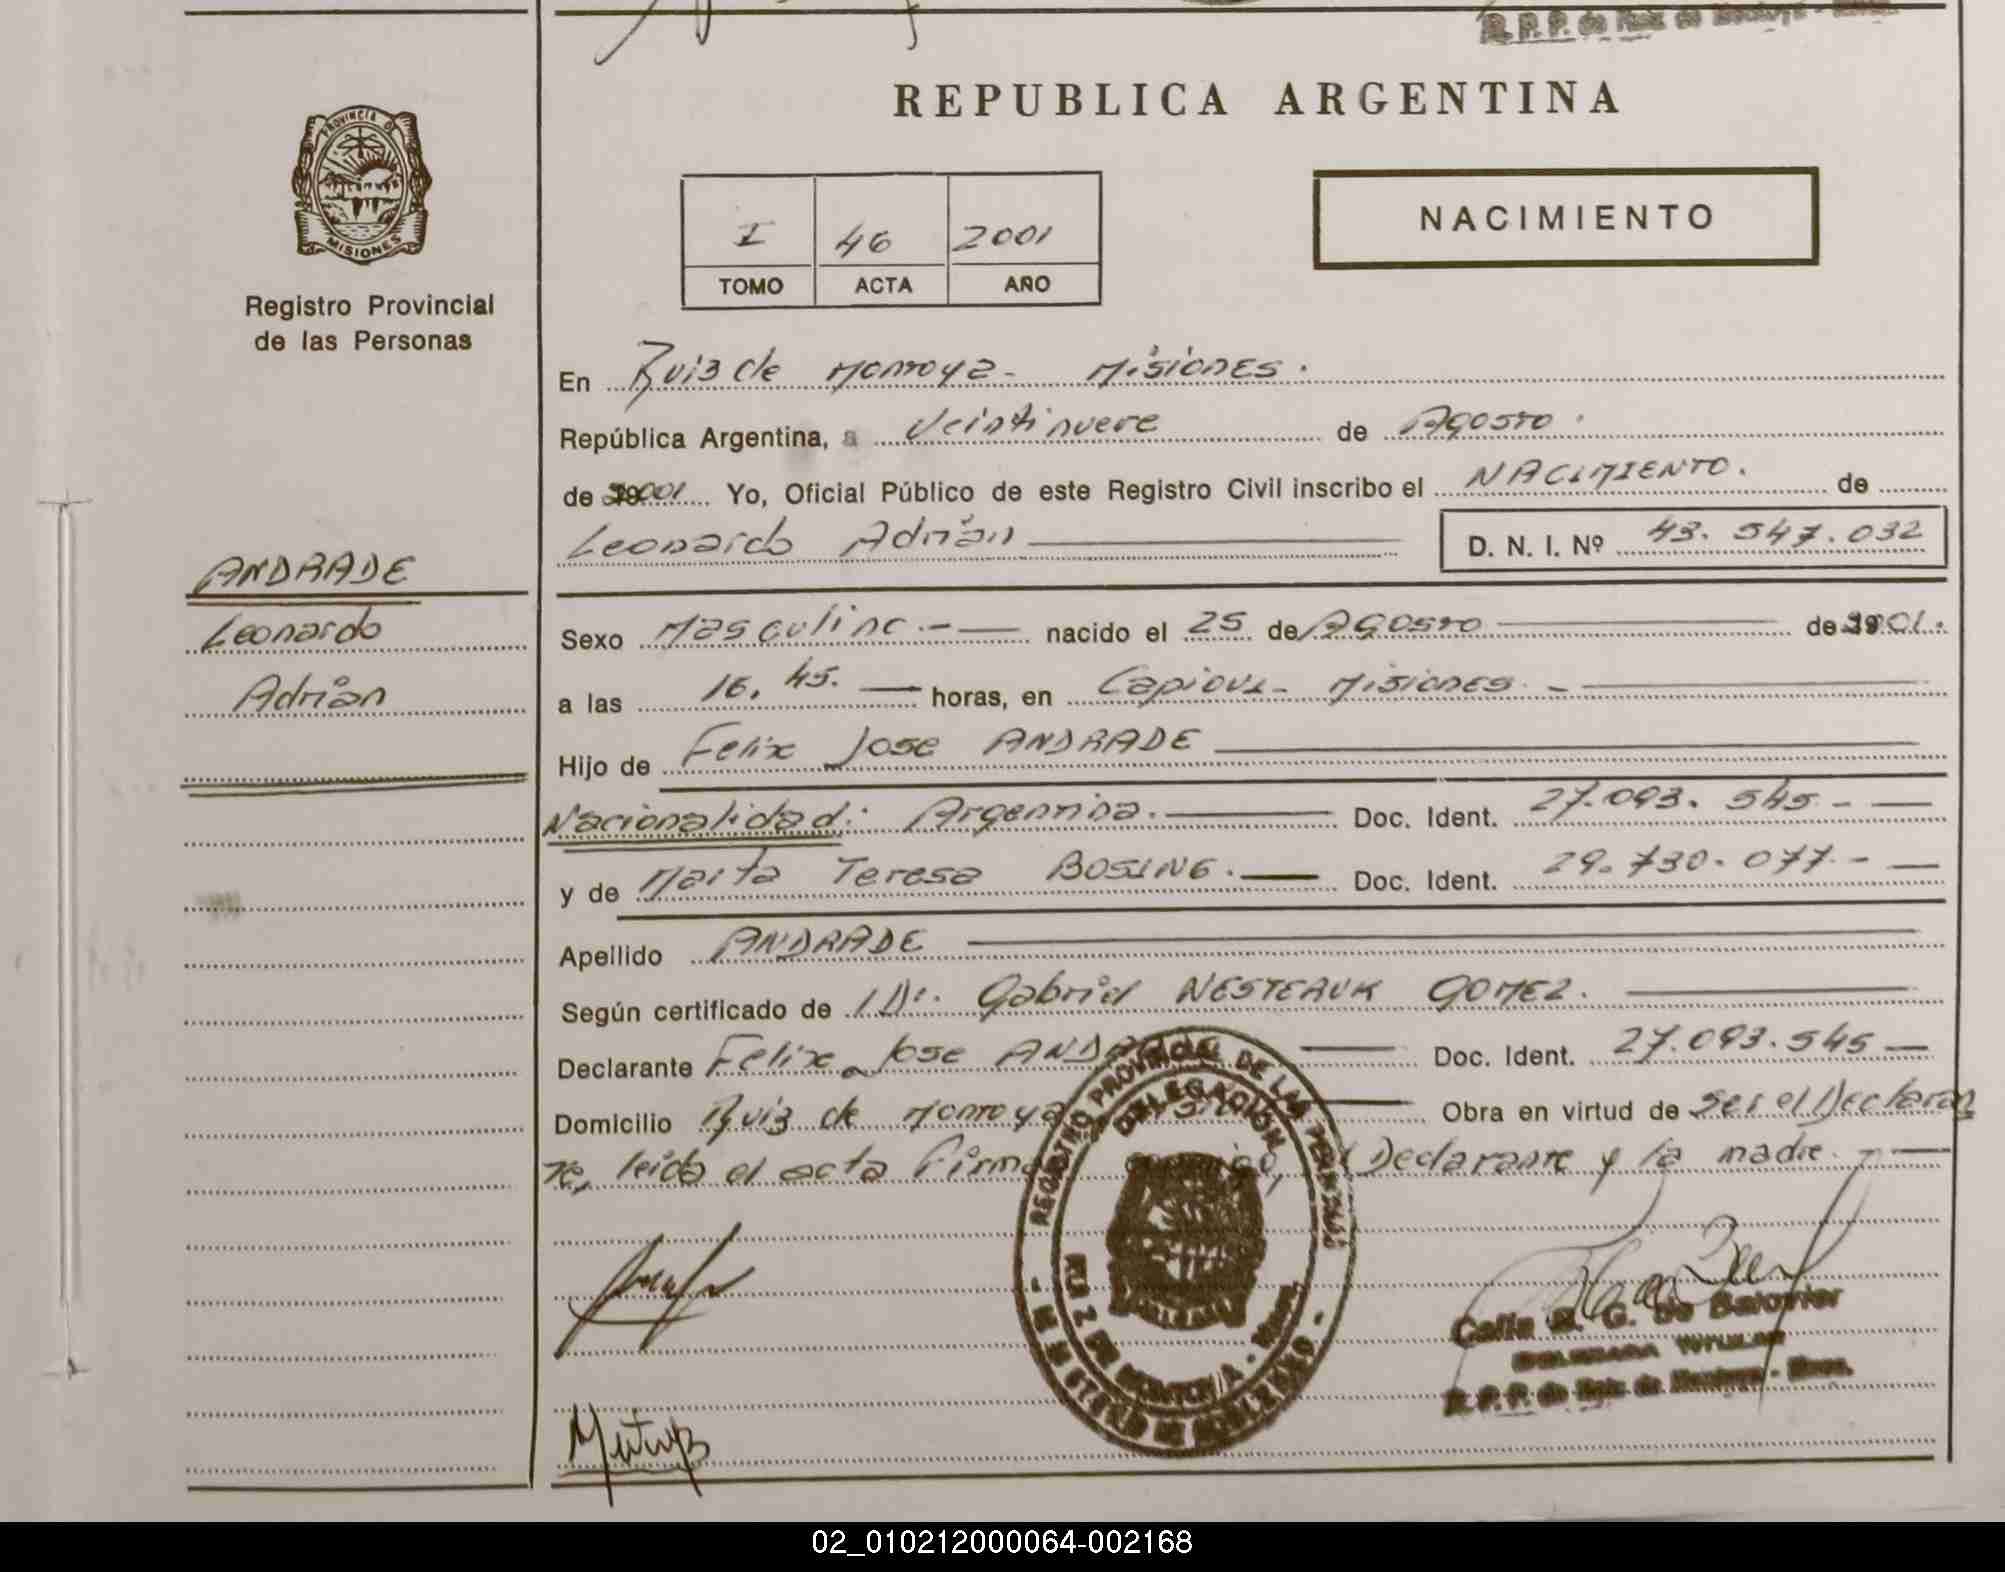 R. P. P. de Ruiz de Montoya - Mnes.
REPUBLICA ARGENTINA
PROVINCIA DE
MISIONES
Registro Provincial
de las Personas
I 46 2001
TOMO ACTA AÑO
NACIMIENTO
En Ruiz de Montoya - Misiones.
República Argentina, a Veintinueve de Agosto.
de 2001 Yo, Oficial Público de este Registro Civil inscribo el NACIMIENTO. de
Leonardo Adrián D. N. I. Nº 43.547.032
ANDRADE
Leonardo
Adrián
Sexo Masculino.- nacido el 25 de Agosto de 2001.
a las 16.45. horas, en Capioví - Misiones. -
Hijo de Felix Jose ANDRADE
Nacionalidad: Argentina. Doc. Ident. 27.093.545 -
y de Marta Teresa BOSING. Doc. Ident. 29.730.077 -
Apellido ANDRADE
Según certificado de Dr. Gabriel NESTERUK GOMEZ.
Declarante Felix Jose Doc. Ident. 27.093.545
Domicilio Ruiz de Montoya Obra en virtud de ser el Declaran
te, leida el acta Declarante y la madre.
REGISTRO PROVINCIAL DE LAS PERSONAS
DELEGACIÓN
RUIZ DE MONTOYA - MNES.
MINISTERIO DE GOBIERNO
DELEGADA TITULAR
R. P. P. de Ruiz de Montoya - Mnes.
02_010212000064-002168